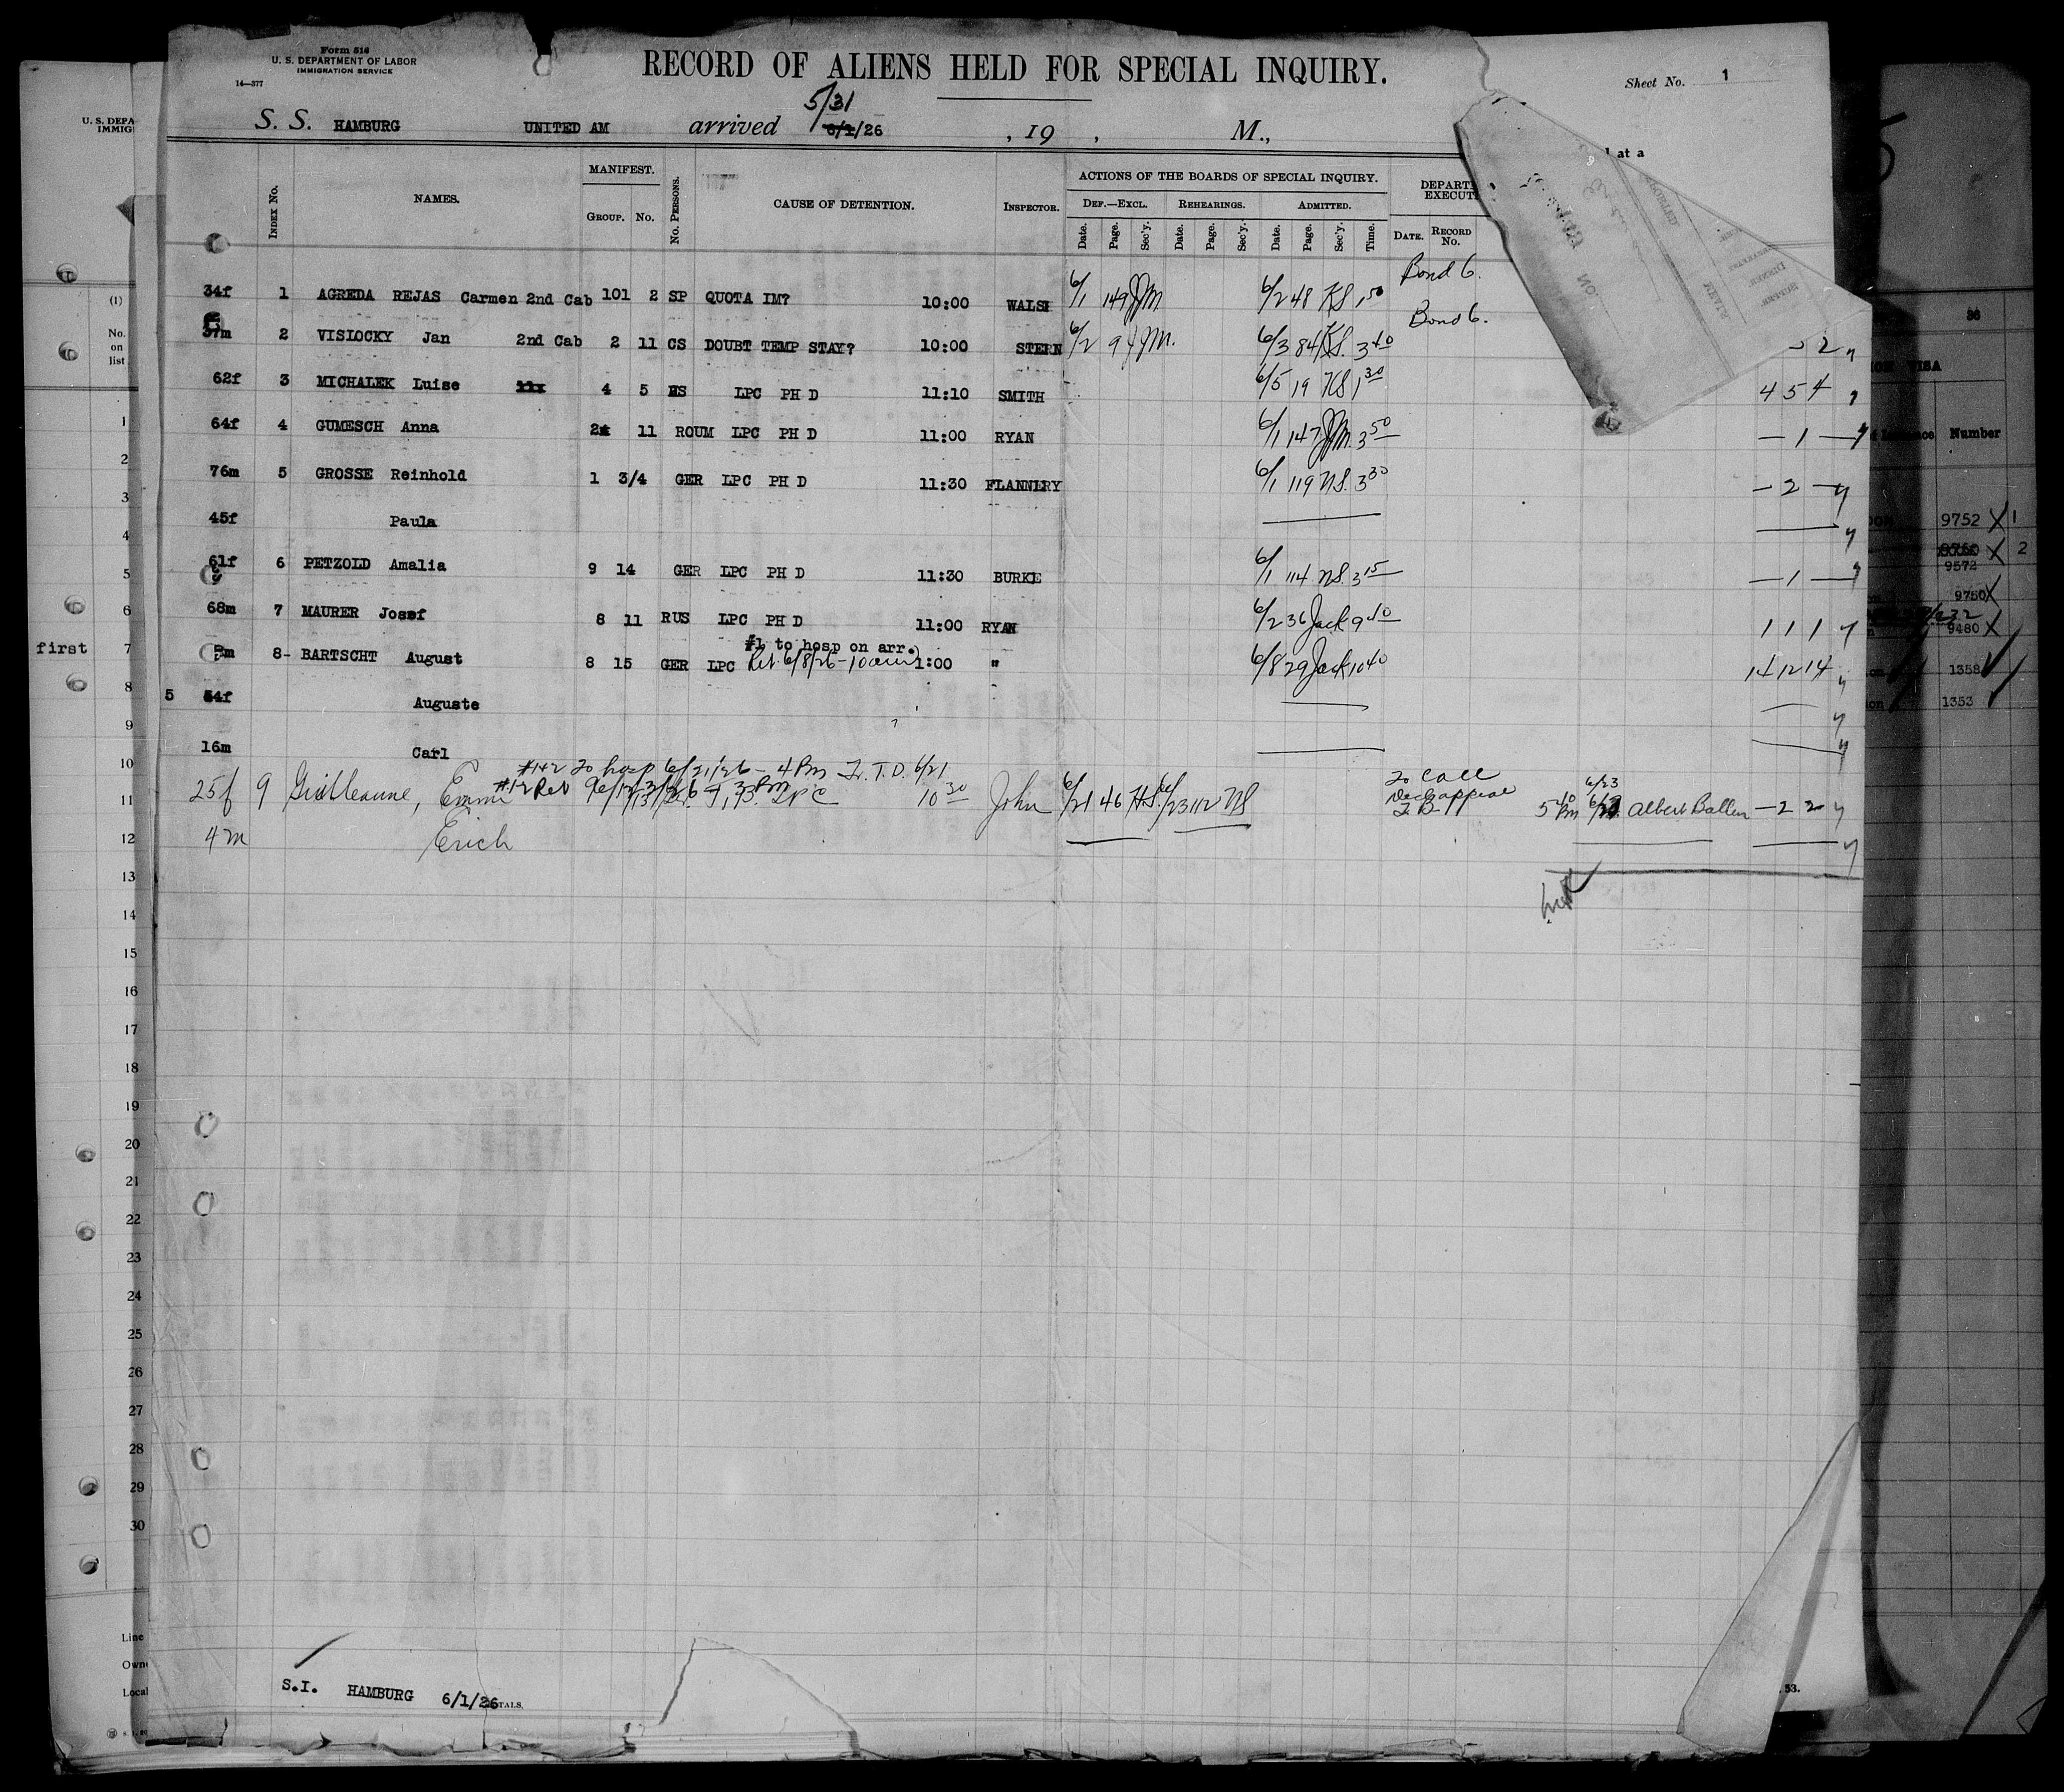 Form 516
U. S. DEPARTMENT OF LABOR
IMMIGRATION SERVICE
14—377
RECORD OF ALIENS HELD FOR SPECIAL INQUIRY.
Sheet No. 1
5/31
S. S. HAMBURG UNITED AM arrived 6/1/26 , 19 , M.,
l at a
U. S. DEPA
IMMIG
Index No. NAMES. MANIFEST. GROUP. No. No. PERSONS. CAUSE OF DETENTION. INSPECTOR. ACTIONS OF THE BOARDS OF SPECIAL INQUIRY. DEPART
EXECUT
DEF.—EXCL. REHEARINGS. ADMITTED.
Date. Page. Sec'y. Date. Page. Sec'y. Date. Page. Sec'y. Time. DATE. RECORD No.
34f 1 AGREDA REJAS Carmen 2nd Cab 101 2 SP QUOTA IM? 10:00 WALSH 6/1 149 JM 6/2 48 KS 1 50 Bond 6.
37m 2 VISLOCKY Jan 2nd Cab 2 11 CS DOUBT TEMP STAY? 10:00 STERN 6/2 9 JM. 6/3 84 KS. 3 40 Bond 6.
62f 3 MICHALEK Luise 4 5 LPC PH D 11:10 SMITH 6/5 19 KS 1 30 4 5 4
64f 4 GUMESCH Anna 2 11 ROUM LPC PH D 11:00 RYAN 6/1 147 JM. 3 50 — 1 —
76m 5 GROSSE Reinhold 1 3/4 GER LPC PH D 11:30 FLANNERY 6/1 119 NS. 3 30 — 2 —
45f Paula
61f 6 PETZOLD Amalia 9 14 GER LPC PH D 11:30 BURKE 6/1 114 NS. 3 15 — 1 —
68m 7 MAURER Josef 8 11 RUS LPC PH D 11:00 RYAN 6/2 36 Jack 9 40 1 1 1
#1 to hosp on arr.
8- BARTSCHT August 8 15 GER LPC Ret. 6/8/26 - 10 am 1:00 " 6/8 29 Jack 10 40 14 12 14
5 54f Auguste
16m Carl
#1+2 to hosp 6/21/26 - 4 Pm L.T.D. 6/21
25f 9 Emma #1+2 Ret LPC 10 30 John 6/21 46 HS. 6/23 112 NS To Call 5 40 Pm 6/23 Albert Ballin — 2 2
4m Erich
(1)
No.
on
list
1
2
3
4
5
6
first 7
8
9
10
11
12
13
14
15
16
17
18
19
20
21
22
23
24
25
26
27
28
29
30
Line
Own
Local
36
VISA
Number
9752 X 1
9750 X 2
9572
9750X
9480 X
1358
1353
S.I. HAMBURG 6/1/26 TALS.
53.